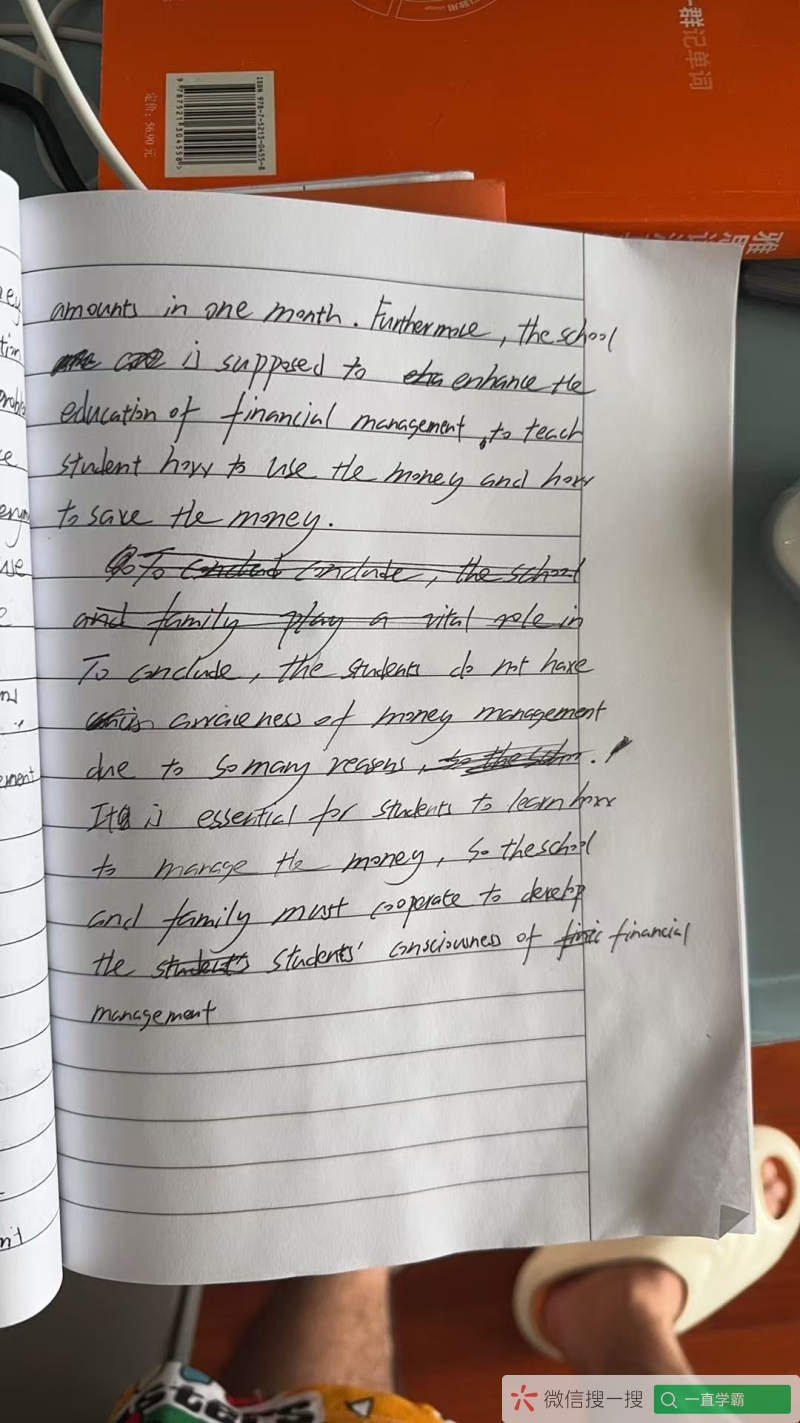 群记单词
ISBN 978-7-5213-0455-8
9 787521 304558
定价: 56.90 元
雅思
amounts in one month. Furthermore, the school
is supposed to enhance the
education of financial management, to teach
student how to use the money and how
to save the money.
To conclude, the school
and family play a vital role in
To conclude, the students do not have
awareness of money management
due to so many reasons, so the .
It is essential for students to learn how
to manage the money, so the school
and family must cooperate to develop
the student's students' consciousness of finic financial
management
微信搜一搜
一直学霸